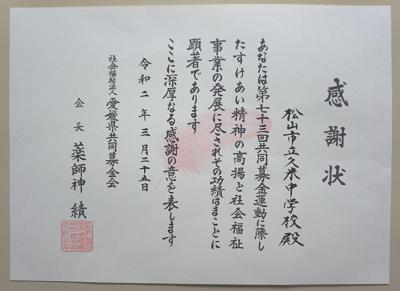 感謝状
松山市立久米中学校殿
あなたは第七十三回共同募金運動に際し
たすけあい精神の高揚と社会福祉
事業の発展に尽されその功績はまことに
顕著であります
ここに深厚なる感謝の意を表します
令和二年三月二十五日
社会福祉法人 愛媛県共同募金会
会長 薬師神績